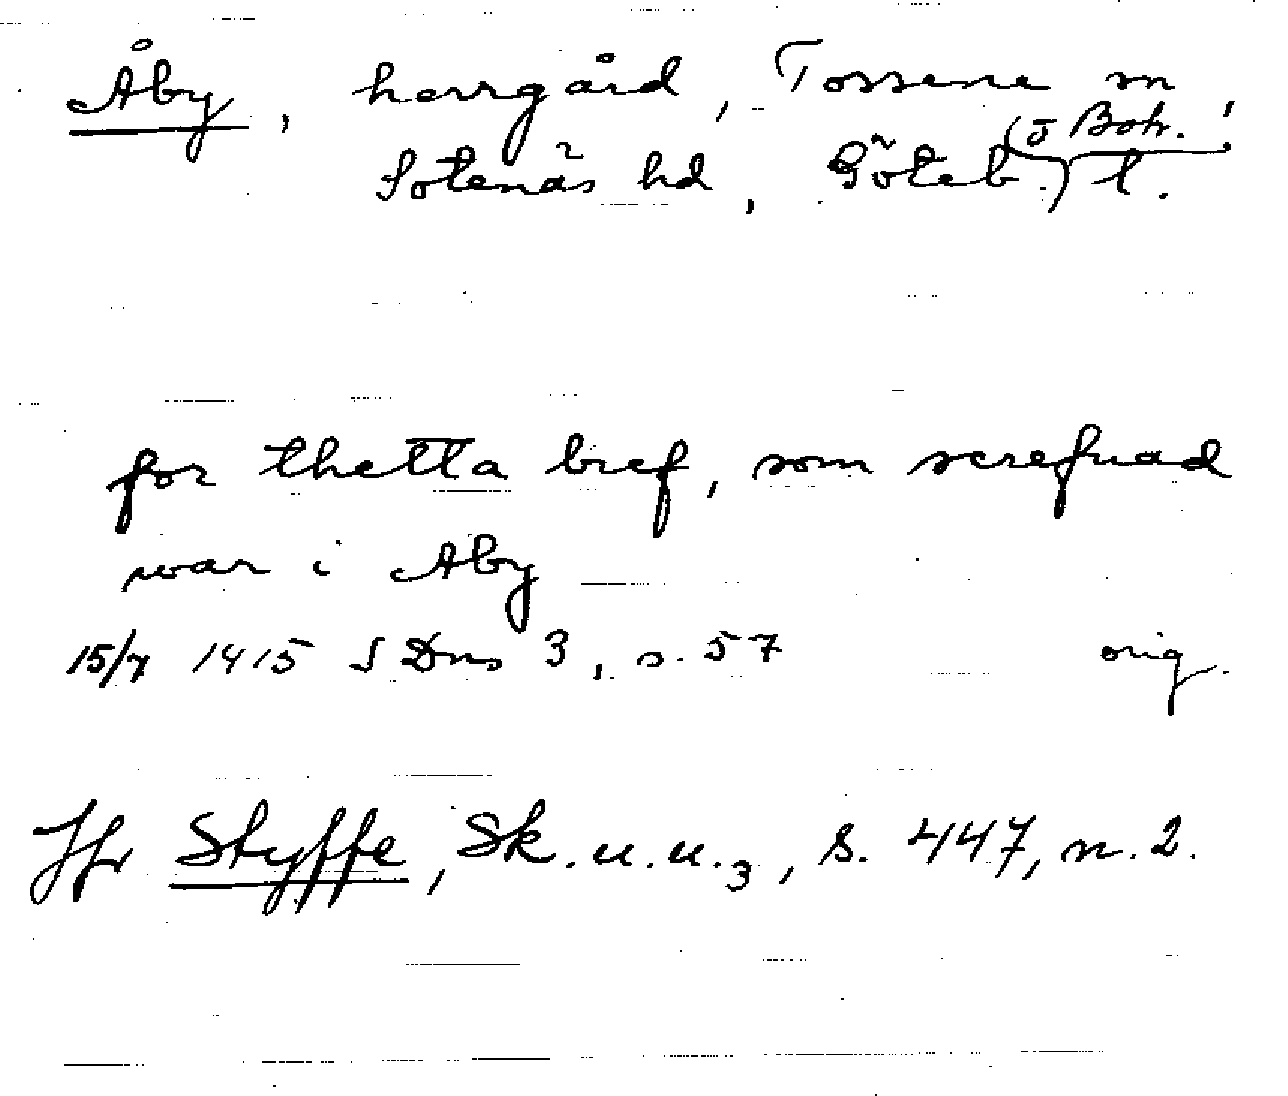 Åby, herrgård, Tossene sn,
Sotenäs hd, Göteb. (o Boh.) l.
for thetta bref, som screfuad
war i Aby
15/7 1415 SDns 3, s. 57 orig.
Jfr Styffe, Sk.u.u.3, s. 447, n. 2.